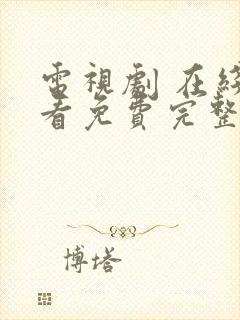 電視劇 在綫
看免費完整
博塔